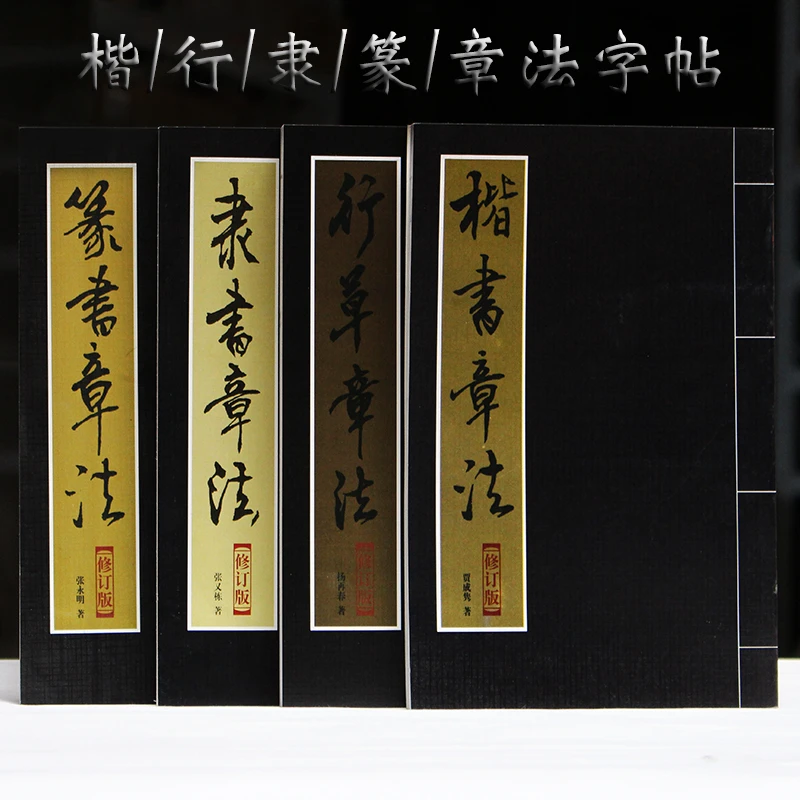 楷/行/隶/篆/章法字帖
篆书章法
【修订版】
张永明 著
隶书章法
【修订版】
张又栋 著
行草章法
【修订版】
杨再春 著
楷书章法
【修订版】
贾成隽 著